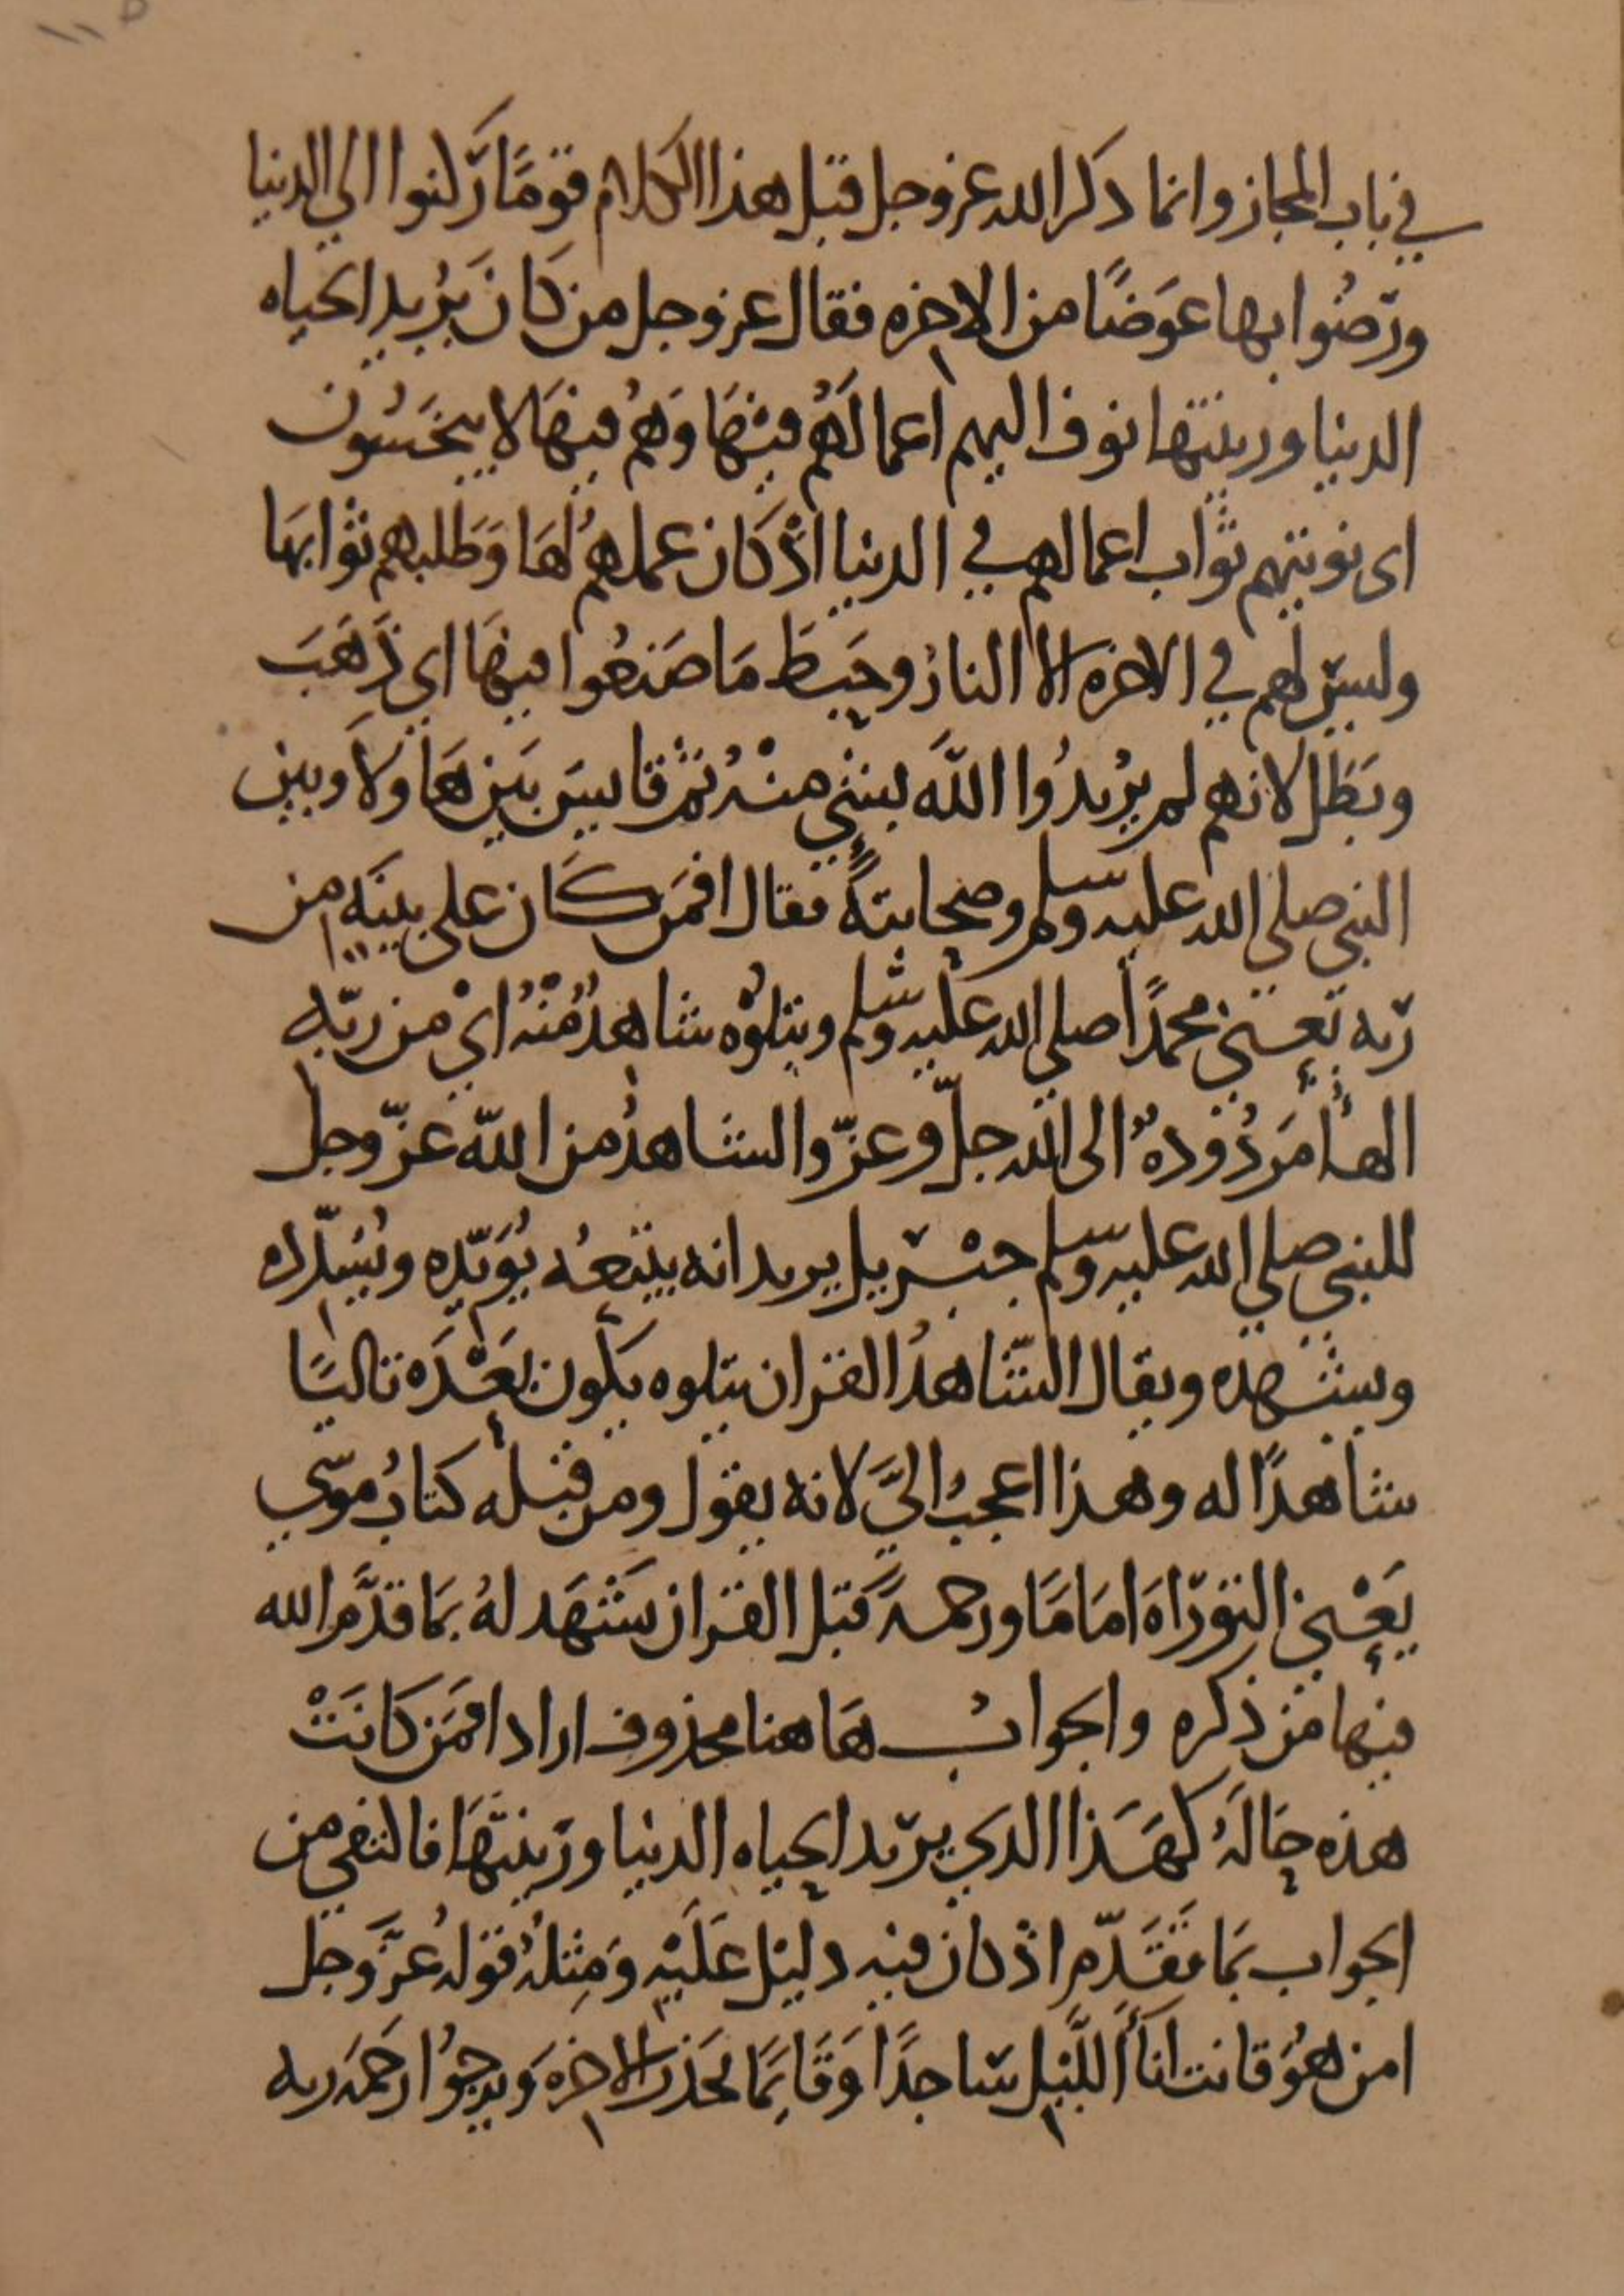 في باب المجاز وانما ذكر الله عز وجل قبل هذا الكلام قومًا رَكنوا الي الدنيا
ورَضُوا بها عوَضًا من الاخره فقال عز وجل من كَانَ يُريد الحياه
الدنيا وزينتها نوف اليهم اعمالَهُم فيْهَا وَهُم فيهَا لا يبخَسُون
اى نوتيهم ثواب اعمالهم في الدنيا اذْ كَان عملهُم لهَا وَطَلبهم ثوابهَا
وليسَ لهم في الاخره الا النارُ وحَبطَ مَا صَنعُوا فيهَا اي ذَهَبَ
وبَطَل لانهم لم يُريدُوا اللّهَ بشيٍ منْهُ ثم قايسَ بَين هَاولاَ وبين
النبي صلي الله عليه وسلم وصحابته فقال افمَن كَان علي بينَه من
رَبه يَعْني محمدًا صلي الله عليه وسلم ويتلوُه شاهدٌ مّنْهُ ايْ من ربّه
الهأ مَردُودهٌ الى الله جلّ وعزّ والشاهدُ من اللّه عزّ وجل
للنبي صلي الله عليه وسلم جبْريل يريد انه يتبعُه يُوَيّده ويُسَدّده
ويشهده ويقال الشّاهدُ القران يتلوه يكون بَعْدَه تاليًا
شاهدًا له وهذا اعجبُ اليَّ لانه يقول ومن قبله كتابُ موسَي
يَعْني التورَاهَ امَامًا ورحمهً قبل القران يشْهَد لهُ بمَا قدَّم الله
فيها من ذكره والجوابُ هَاهنا محذوف اراد افمَن كَانَتْ
هذه حَالَهُ كهَذا الدي يرَيد الحياه الدنيا وزينتهَا فاكتفي من
الجواب بمَا تقَدّم اذ كان فيه دليل علَيْه وَمِثلهُ قولهُ عَزّ وَجل
امن هُوَ قانت اناأَ اللّيل سَاجدًا وَقَايمًا يحَذر الاخرهَ وَيرجُوا رَحمَه ربه